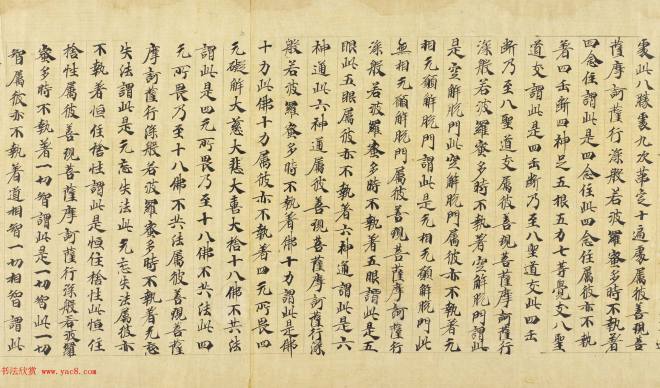 處此八勝處九次第定十遍處屬彼善現菩
薩摩訶薩行深般若波羅蜜多時不執著
四念住謂此是四念住此四念住屬彼亦不執
著四正斷四神足五根五力七等覺支八聖
道支謂此是四正斷乃至八聖道支此四正
斷乃至八聖道支屬彼善現菩薩摩訶薩行
深般若波羅蜜多時不執著空解脫門謂此
是空解脫門此空解脫門屬彼亦不執著无
相无願解脫門謂此是无相无願解脫門此
無相无願解脫門屬彼善現菩薩摩訶薩行
深般若波羅蜜多時不執著五眼謂此是五
眼此五眼屬彼亦不執著六神通謂此是六
神通此六神通屬彼善現菩薩摩訶薩行深
般若波羅蜜多時不執著佛十力謂此是佛
十力此佛十力屬彼亦不執著四无所畏四
无礙解大慈大悲大喜大捨十八佛不共法
謂此是四无所畏乃至十八佛不共法此四
无所畏乃至十八佛不共法屬彼善現菩薩
摩訶薩行深般若波羅蜜多時不執著无忘
失法謂此是无忘失法此无忘失法屬彼亦
不執著恒住捨性謂此是恒住捨性此恒住
捨性屬彼善現菩薩摩訶薩行深般若波羅
蜜多時不執著一切智謂此是一切智此一切
智屬彼亦不執著道相智一切相智謂此
书法欣赏 www.yac8.com